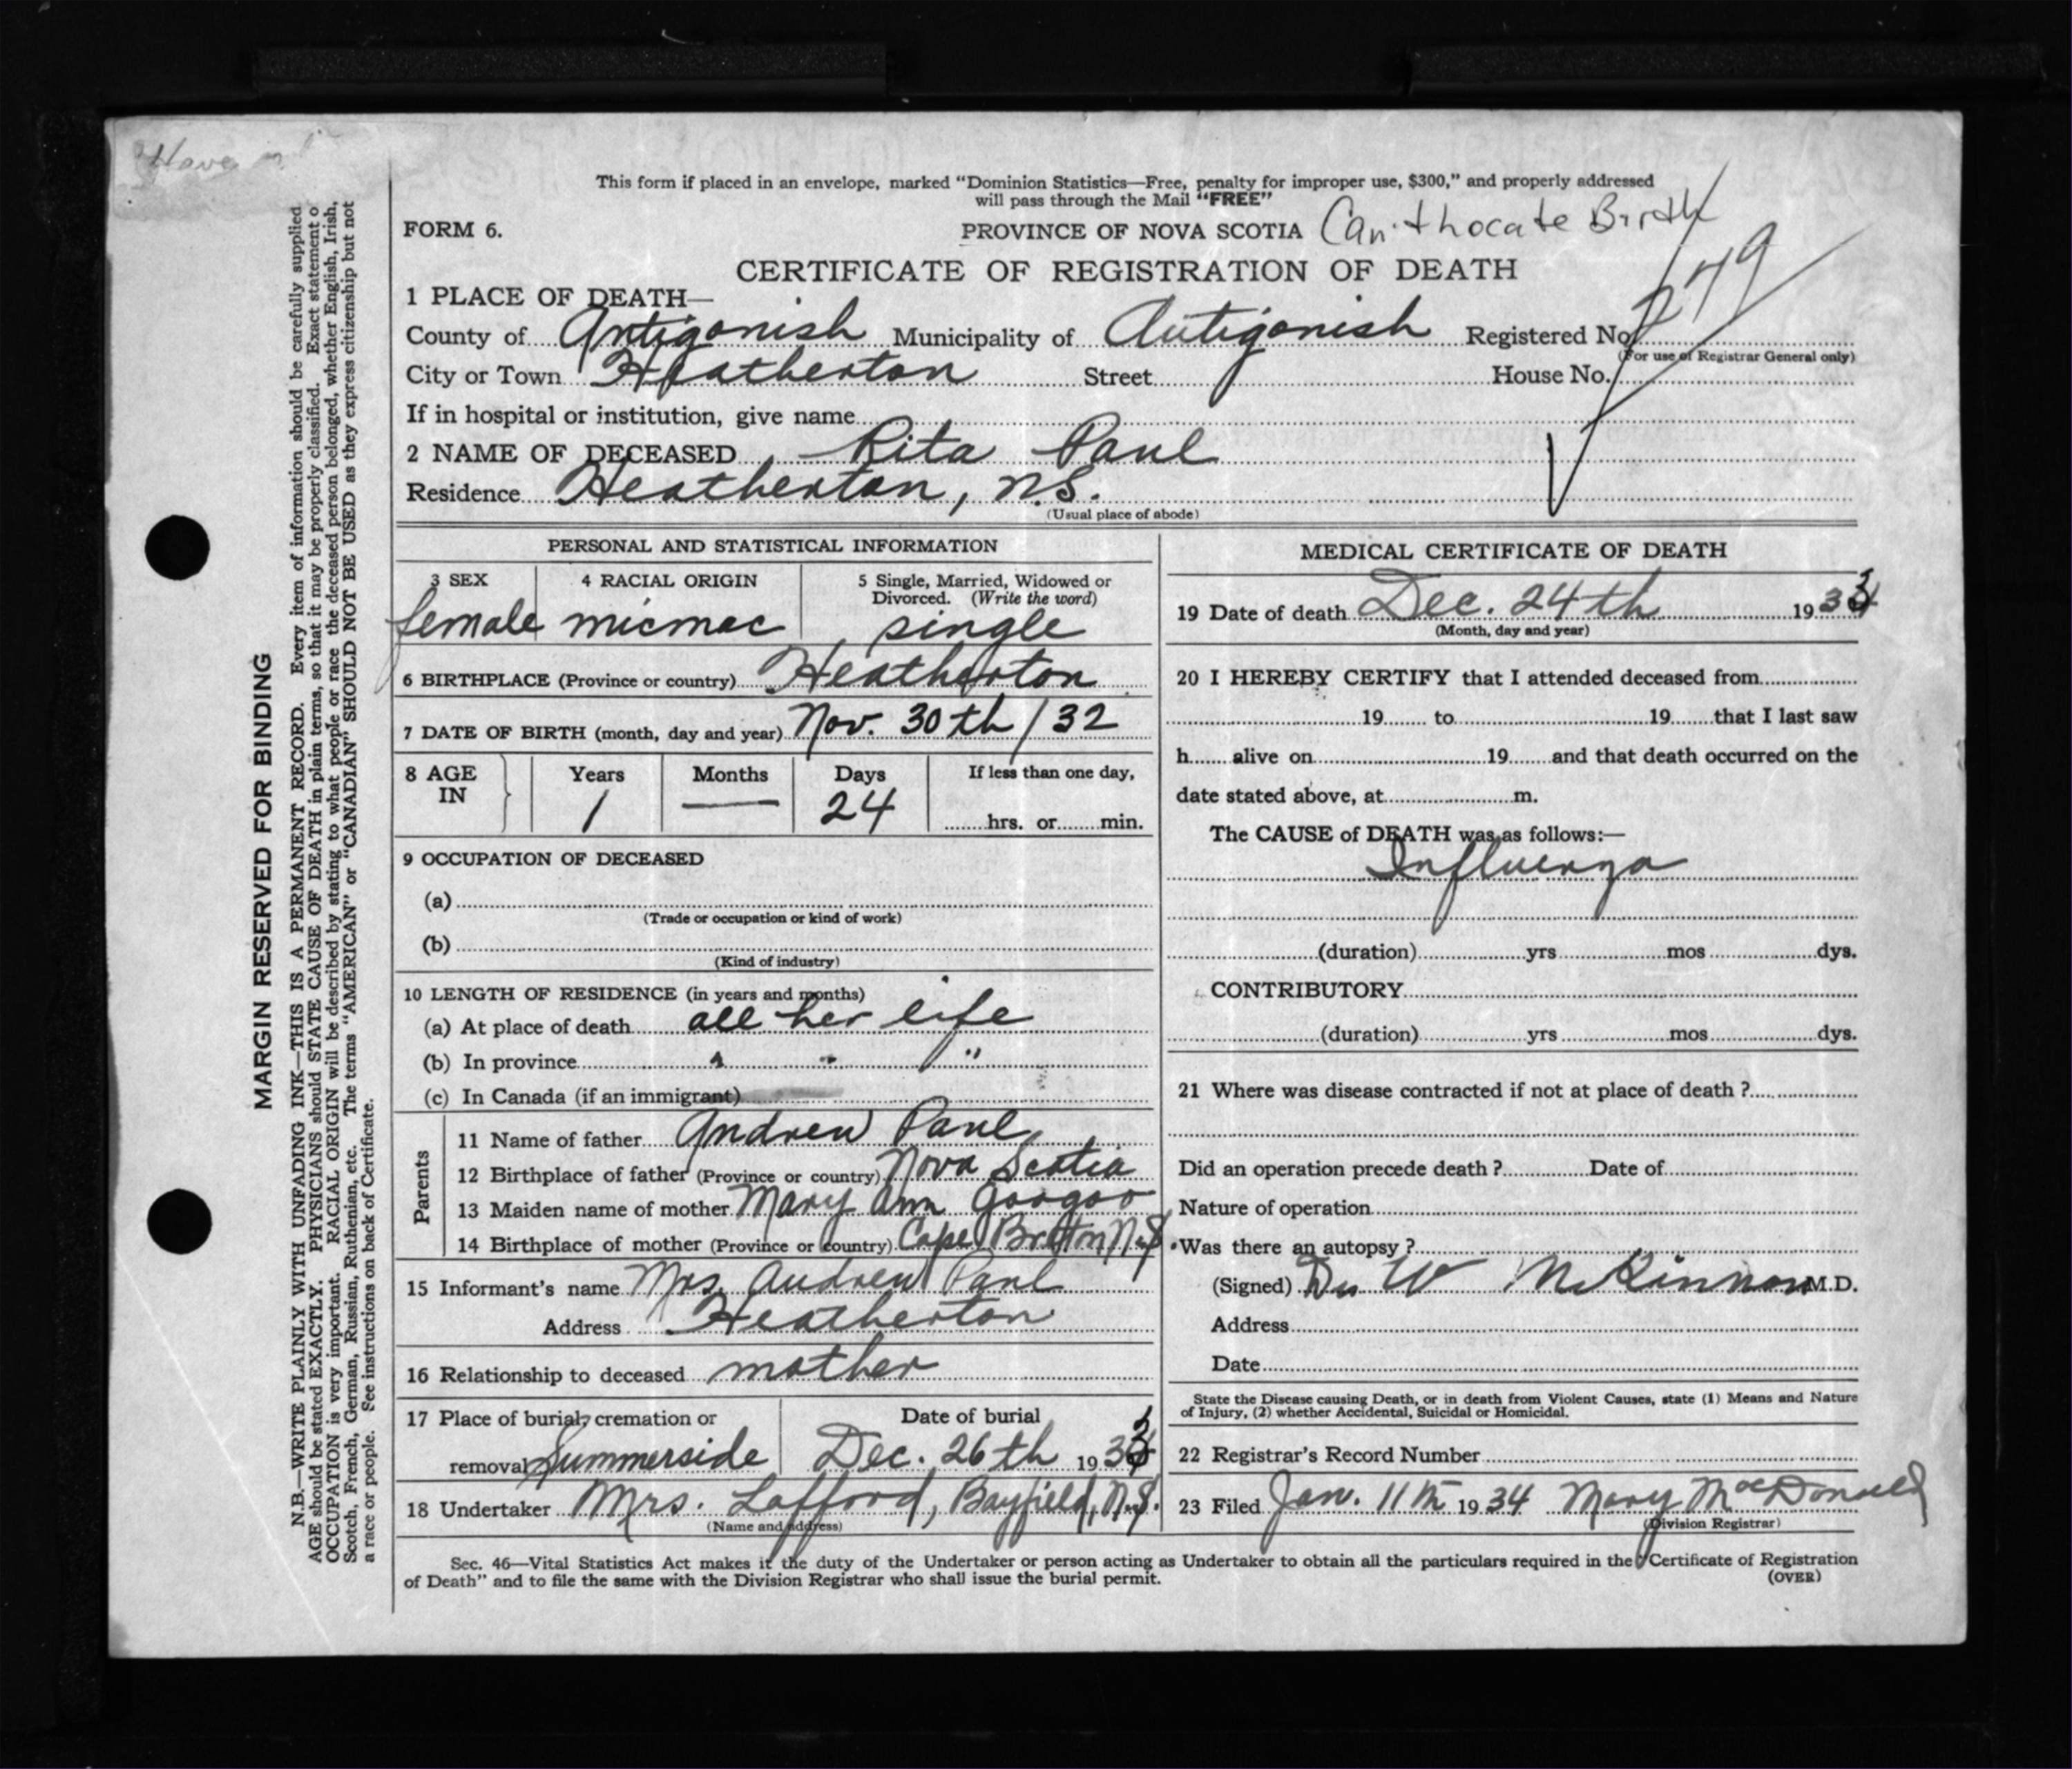 This form if placed in an envelope, marked “Dominion Statistics—Free, penalty for improper use, $300,” and properly addressed
will pass through the Mail “FREE”
FORM 6.
PROVINCE OF NOVA SCOTIA Can't locate Birth
CERTIFICATE OF REGISTRATION OF DEATH
1 PLACE OF DEATH—
County of Antigonish Municipality of Antigonish Registered No. 249
(For use of Registrar General only)
City or Town Heatherton Street House No.
If in hospital or institution, give name
2 NAME OF DECEASED Rita Paul
Residence Heatherton, N.S.
(Usual place of abode)
PERSONAL AND STATISTICAL INFORMATION
3 SEX 4 RACIAL ORIGIN 5 Single, Married, Widowed or
Divorced. (Write the word)
female micmac single
6 BIRTHPLACE (Province or country) Heatherton
7 DATE OF BIRTH (month, day and year) Nov. 30th / 32
8 AGE IN Years Months Days If less than one day,
1 — 24 hrs. or min.
9 OCCUPATION OF DECEASED
(a)
(Trade or occupation or kind of work)
(b)
(Kind of industry)
10 LENGTH OF RESIDENCE (in years and months)
(a) At place of death all her life
(b) In province " " "
(c) In Canada (if an immigrant)
Parents
11 Name of father Andrew Paul
12 Birthplace of father (Province or country) Nova Scotia
13 Maiden name of mother Mary Ann Googoo
14 Birthplace of mother (Province or country) Cape Breton N.S.
15 Informant's name Mrs. Andrew Paul
Address Heatherton
16 Relationship to deceased mother
17 Place of burial, cremation or Date of burial
removal Summerside Dec. 26th 1933
18 Undertaker Mrs. Lafford, Bayfield, N.S.
(Name and address)
MEDICAL CERTIFICATE OF DEATH
19 Date of death Dec. 24th 1933
(Month, day and year)
20 I HEREBY CERTIFY that I attended deceased from
19 to 19 that I last saw
h alive on 19 and that death occurred on the
date stated above, at m.
The CAUSE of DEATH was as follows:—
Influenza
(duration) yrs mos dys.
CONTRIBUTORY
(duration) yrs mos dys.
21 Where was disease contracted if not at place of death ?
Did an operation precede death ? Date of
Nature of operation
Was there an autopsy ?
(Signed) Dr W McKinnon M.D.
Address
Date
State the Disease causing Death, or in death from Violent Causes, state (1) Means and Nature
of Injury, (2) whether Accidental, Suicidal or Homicidal.
22 Registrar's Record Number
23 Filed Jan. 11th 1934 Mary MacDonald
(Division Registrar)
Sec. 46—Vital Statistics Act makes it the duty of the Undertaker or person acting as Undertaker to obtain all the particulars required in the “Certificate of Registration
of Death” and to file the same with the Division Registrar who shall issue the burial permit.
(OVER)
MARGIN RESERVED FOR BINDING
N.B.—WRITE PLAINLY WITH UNFADING INK—THIS IS A PERMANENT RECORD. Every item of information should be carefully supplied
AGE should be stated EXACTLY. PHYSICIANS should STATE CAUSE OF DEATH in plain terms, so that it may be properly classified. Exact statement o
OCCUPATION is very important. RACIAL ORIGIN will be described by stating to what people or race the deceased person belonged, whether English, Irish,
Scotch, French, German, Russian, Ruthenian, etc. The terms “AMERICAN” or “CANADIAN” SHOULD NOT BE USED as they express citizenship but not
a race or people. See instructions on back of Certificate.